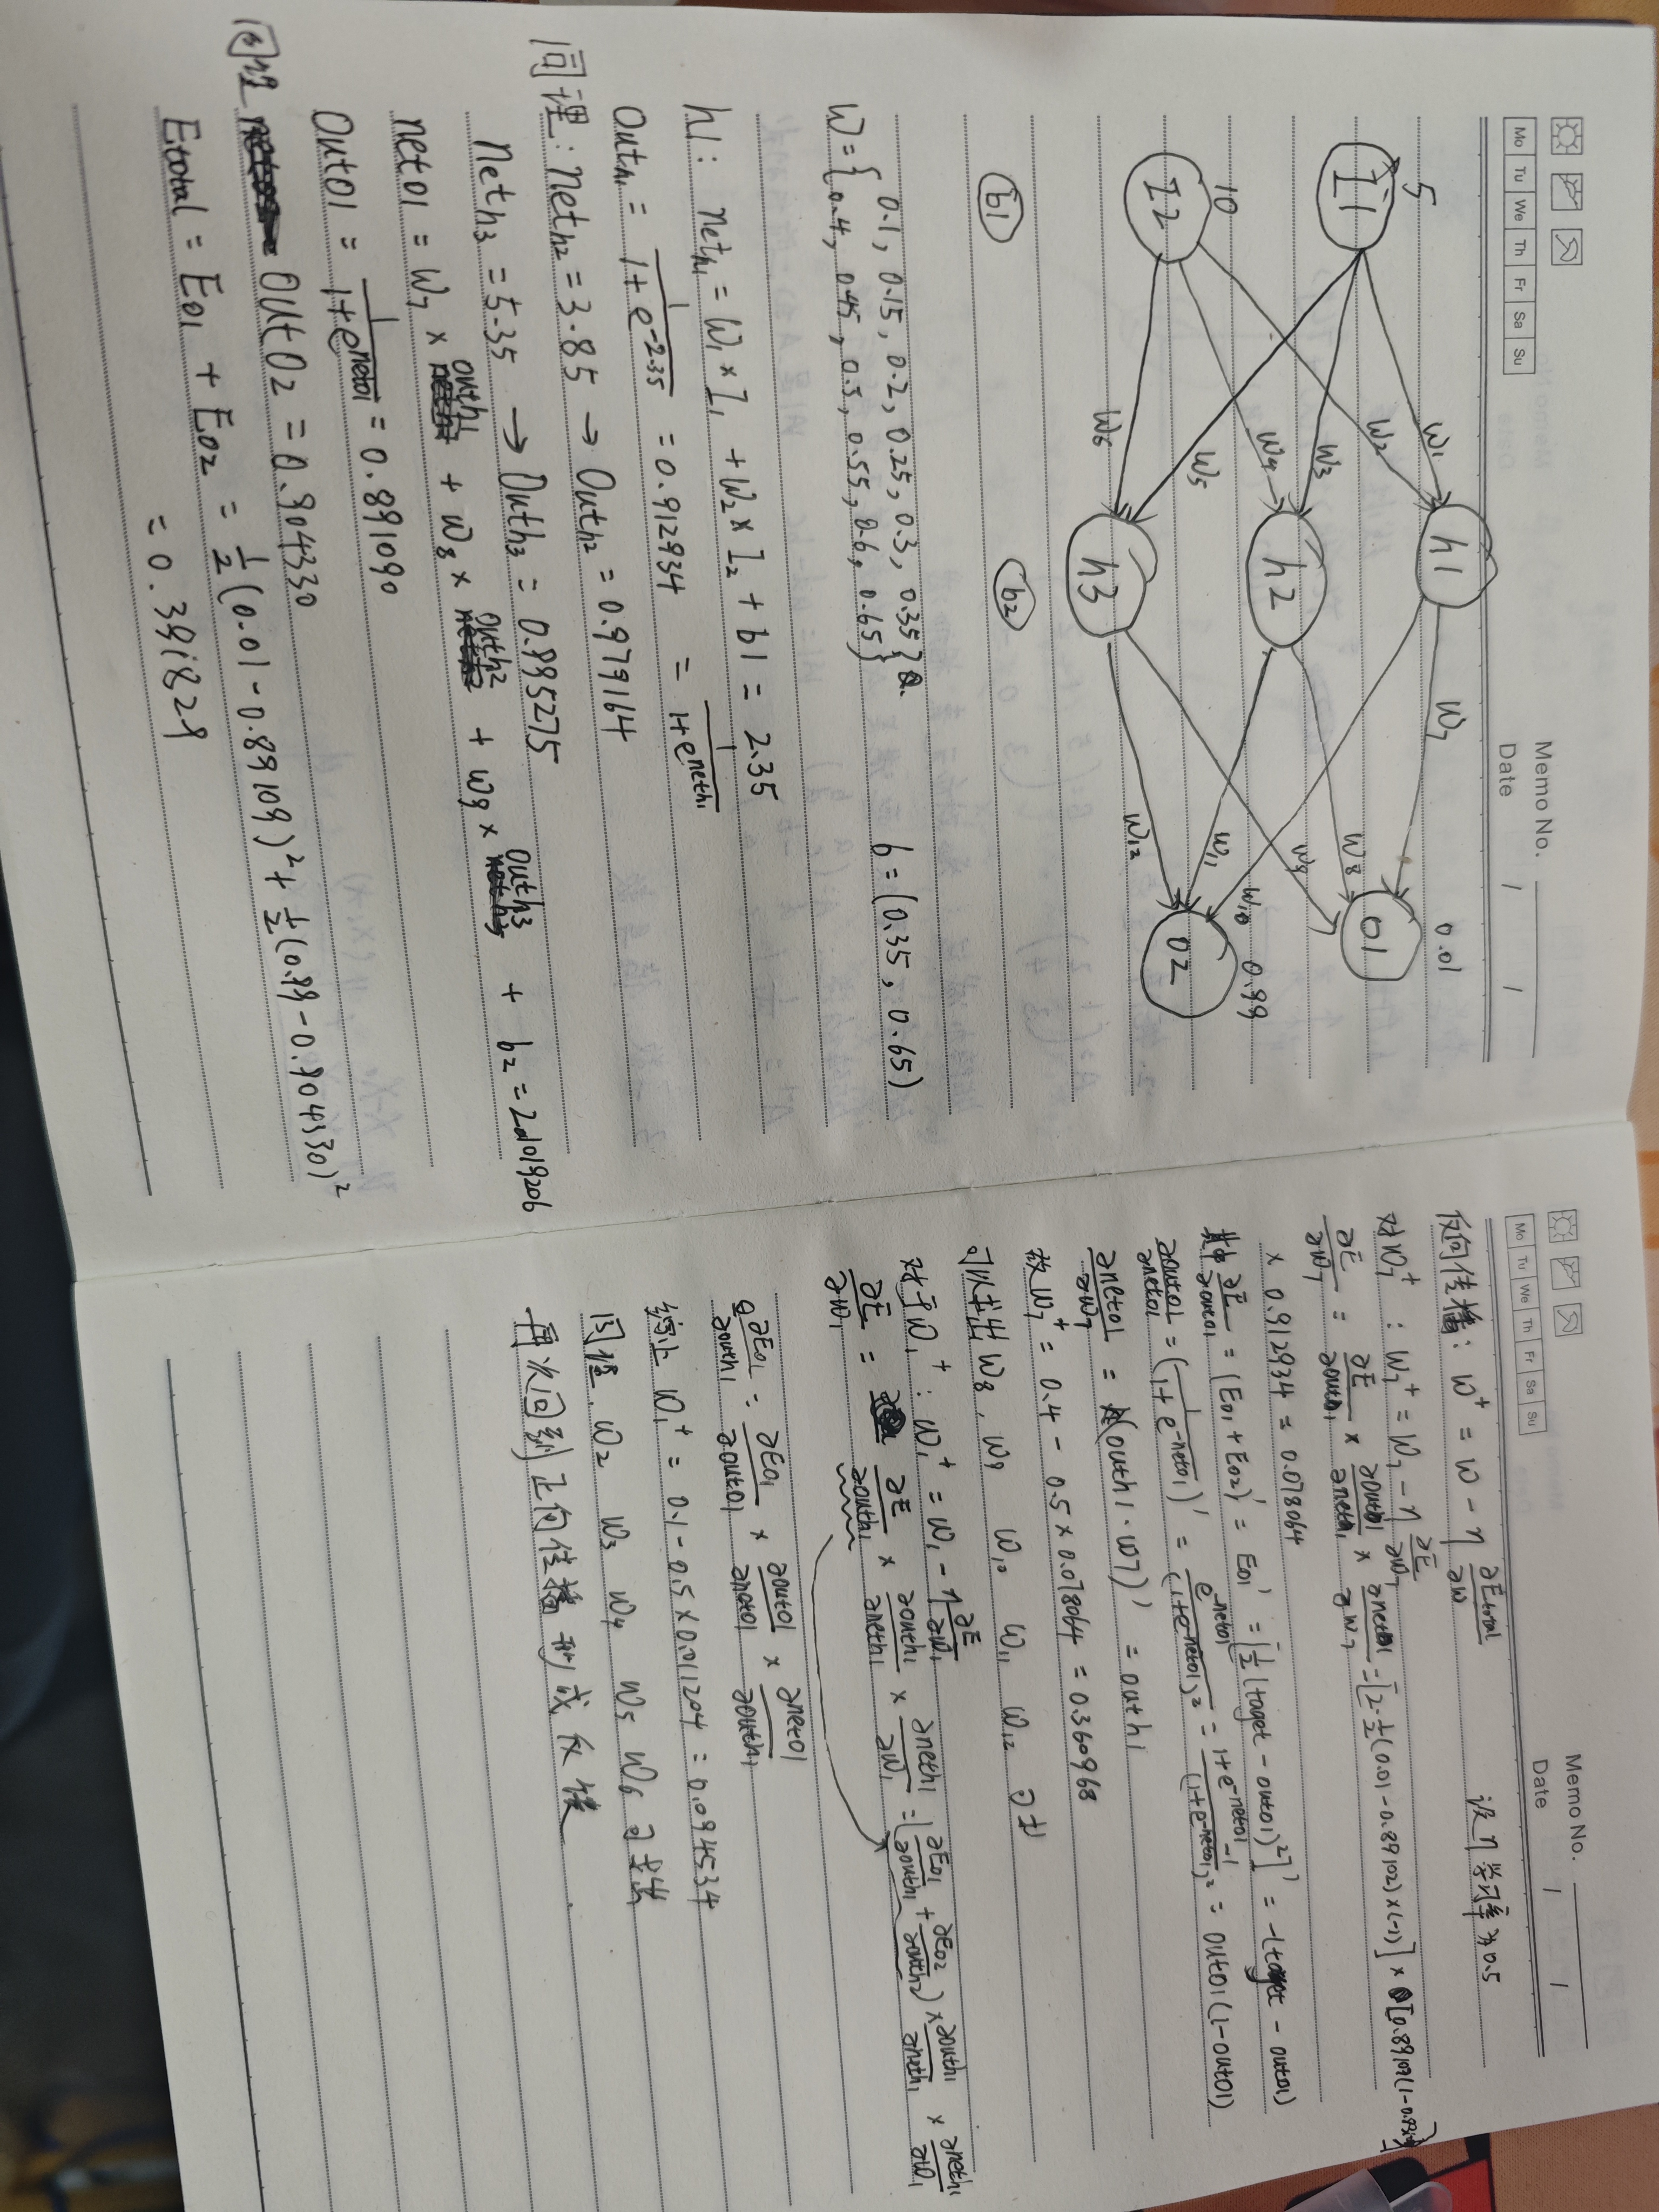 Memo No.
Mo Tu We Th Fr Sa Su
Date / /
5
I1
10
I2
b1
w1
w2
w3
w4
w5
w6
h1
h2
h3
b2
w7
w8
w9
w10
w11
w12
0.01
O1
0.99
O2
W = { 0.1, 0.15, 0.2, 0.25, 0.3, 0.35
0.4, 0.45, 0.5, 0.55, 0.6, 0.65 }
b = (0.35, 0.65)
h1: neth1 = w1 × I1 + w2 × I2 + b1 = 2.35
Outh1 = 1/(1+e^-2.35) = 0.912934 = 1/(1+e^neth1)
同理: neth2 = 3.85 → Outh2 = 0.979164
neth3 = 5.35 → Outh3 = 0.995275
neto1 = w7 × outh1 + w8 × outh2 + w9 × outh3 + b2 = 2.1019206
Outo1 = 1/(1+e^neto1) = 0.891090
同理 OutO2 = 0.904330
Etotal = Eo1 + Eo2 = 1/2(0.01 - 0.89109)² + 1/2(0.99 - 0.904330)²
= 0.391829
Memo No.
Mo Tu We Th Fr Sa Su
Date / /
反向传播: w⁺ = w - η ∂Etotal/∂w 设η学习率为0.5
对w7⁺: w7⁺ = w7 - η ∂E/∂w7
∂E/∂w7 = ∂E/∂outo1 × ∂outo1/∂neto1 × ∂neto1/∂w7 = [2·1/2(0.01-0.89109)×(-1)] × [0.89109(1-0.89109)]
× 0.912934 = 0.078064
其中 ∂E/∂outo1 = (Eo1 + Eo2)' = Eo1' = [1/2(target - outo1)²]' = -(target - outo1)
∂outo1/∂neto1 = (1/(1+e^-neto1))' = e^-neto1/(1+e^-neto1)² = (1+e^-neto1 -1)/(1+e^-neto1)² = outo1(1-outo1)
∂neto1/∂w7 = (outh1·w7)' = outh1
故w7⁺ = 0.4 - 0.5 × 0.078064 = 0.360968
可以求出 w8、w9 w10 w11 w12 可求
对于w1⁺: w1⁺ = w1 - η ∂E/∂w1
∂E/∂w1 = ∂E/∂outh1 × ∂outh1/∂neth1 × ∂neth1/∂w1 = (∂Eo1/∂outh1 + ∂Eo2/∂outh2) × ∂outh1/∂neth1 × ∂neth1/∂w1
∂Eo1/∂outh1 = ∂Eo1/∂outo1 × ∂outo1/∂neto1 × ∂neto1/∂outh1
综上 w1⁺ = 0.1 - 0.5 × 0.011204 = 0.094534
同理 w2 w3 w4 w5 w6 可求出
再次回到正向传播 形成